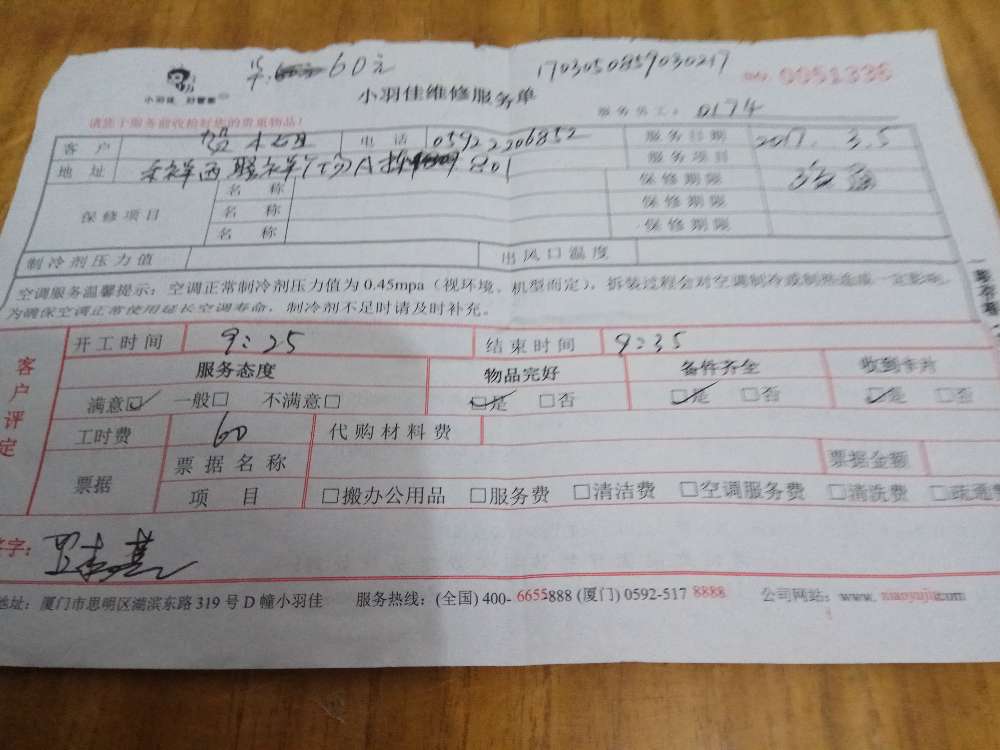 60元 170305085903021​7
小羽佳 好管家 小羽佳维修服务单 0051336
请您于服务前收拾好您的贵重物品! 服务员工: 0174
客户 电话 0592 2206852 服务日期 2017. 3.5
地址 801 服务项目
保修项目 名称 保修期限
名称 保修期限
名称 保修期限
制冷剂压力值 出风口温度
空调服务温馨提示: 空调正常制冷剂压力值为0.45mpa(视环境、机型而定),拆装过程会对空调制冷或制热造成一定影响,
为确保空调正常使用延长空调寿命,制冷剂不足时请及时补充。
客户评定
开工时间 9:25 结束时间 9:35
服务态度 物品完好 备件齐全 收到卡片
满意☑ 一般□ 不满意□ ☑是 □否 ☑是 □否 ☑是 □否
工时费 60 代购材料费
票据 票据名称 票据金额
项目 □搬办公用品 □服务费 □清洁费 □空调服务费 □清洗费 □疏通费
签字:
地址: 厦门市思明区湖滨东路319号D幢小羽佳 服务热线: (全国) 400-6655888 (厦门) 0592-517 8888 公司网站: www. xiaoyujia.com